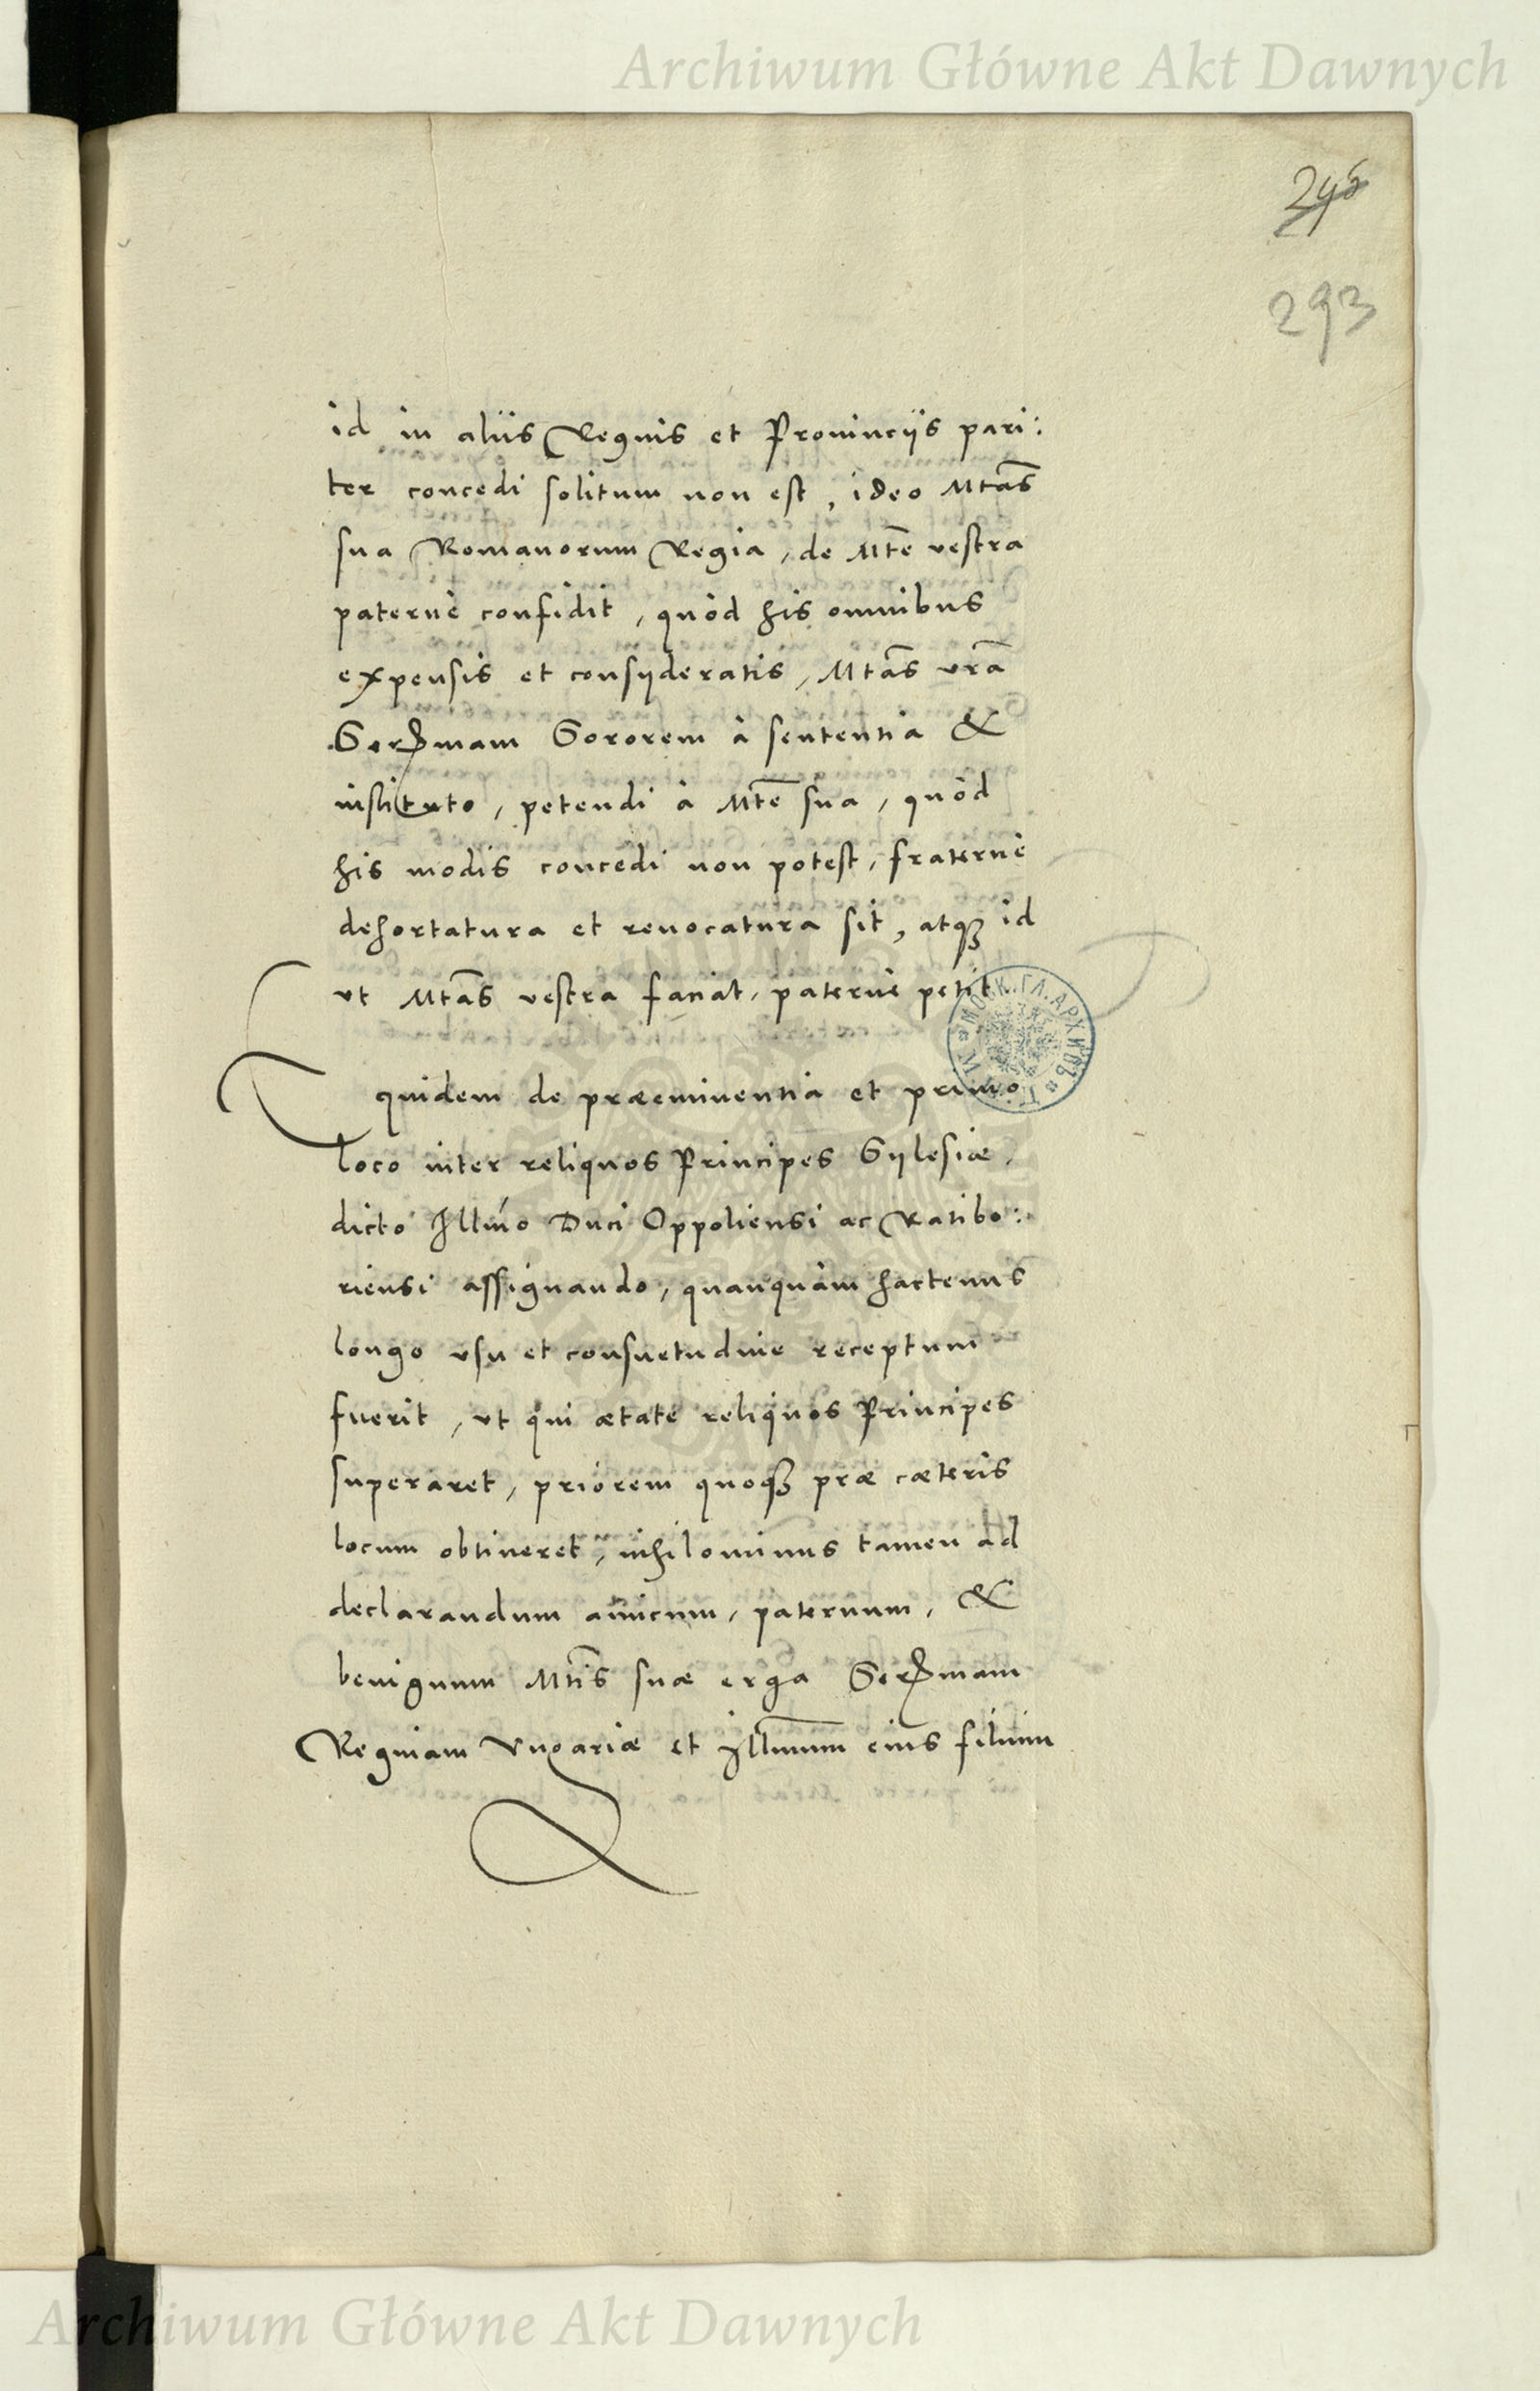 Archiwum Główne Akt Dawnych
245
293
id in aliis Regnis et Prouinciis pari:
ter concedi solitum non est, ideo Mtãs
sua Romanorum Regia, de Mtẽ vestra
paternè confidit, quòd his omnibus
expensis et consyderatis, Mtãs vrã
Serᵐᵃᵐ Sororem à sententia &
instituto, petendi à Mtẽ sua, quòd
his modis concedi non potest, fraternè
dehortatura et reuocatura sit, atqꝫ id
vt Mtãs vestra faciat, paternè petit
quidem de præeminentia et primo
loco inter reliquos Principes Sylesiæ,
dicto Illmo Duci Oppoliensi ac Ratibo:
riensi assignando, quanquàm hactenus
longo vsu et consuetudine receptum
fuerit, vt qui ætate reliquos Principes
superaret, priorem quoqꝫ præ cæteris
locum obtineret, nihilominus tamen ad
declarandum amicum, paternum, &
benignum Mtĩs suæ erga Serᵐᵃᵐ
Reginam Vngariæ et Illmum eius filium
Archiwum Główne Akt Dawnych